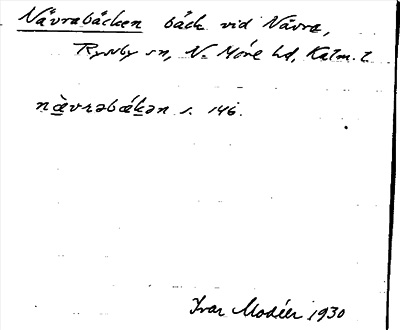 Nävrabäcken bäck vid Nävra,
Ryssby sn, N. Möre hd, Kalm. l.
nä̀vrabäkən s. 146.
Ivar Modéer 1930